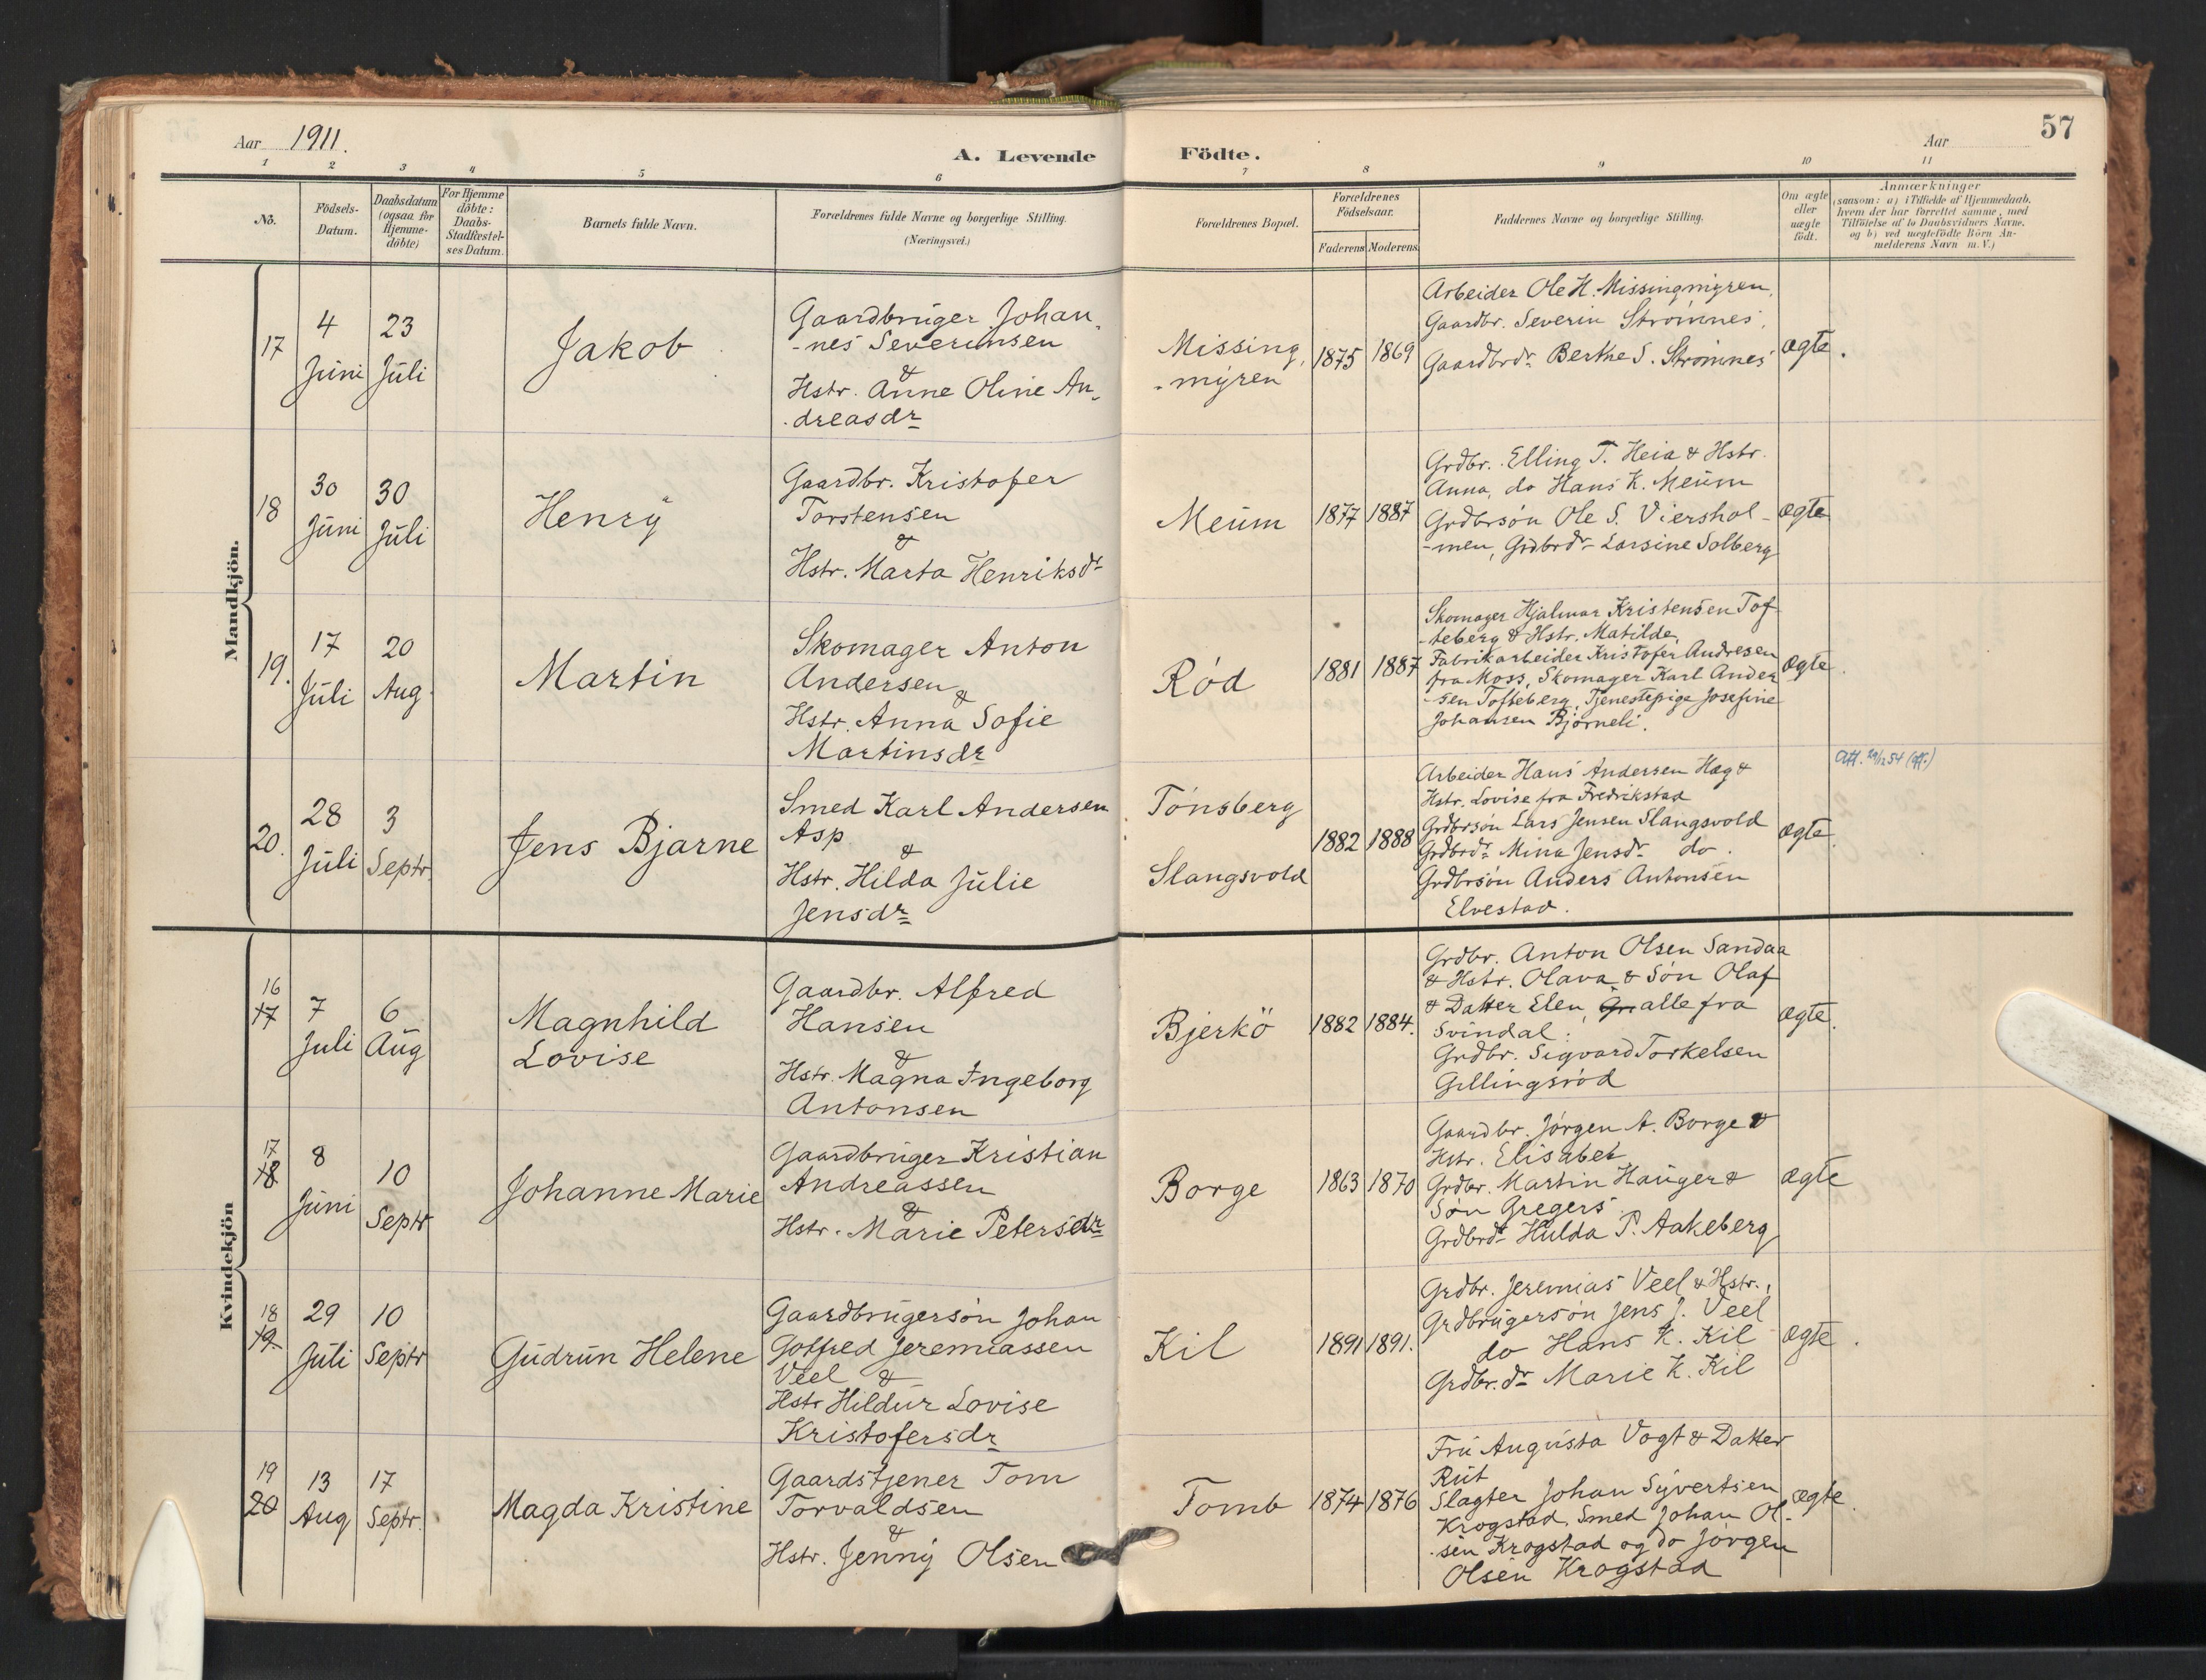 57
Aar 1911.
A. Levende Födte.
Aar
1 2 3 4 5 6 7 8 9 10 11
No.
Födsels-
Datum.
Daabsdatum
(ogsaa for
Hjemme-
döbte)
For Hjemme
döbte:
Daabs-
Stadfæstel-
ses Datum.
Barnets fulde Navn.
Forældrenes fulde Navne og borgerlige Stilling.
(Næringsvei.)
Forældrenes Bopæl.
Forældrenes
Födselsaar.
Faderens Moderens
Faddernes Navne og borgerlige Stilling.
Om ægte
eller
uægte
födt.
Anmærkninger
(saasom: a) i Tilfælde af Hjemmedaab,
hvem der har forrettet samme, med
Tilföielse af to Daabsvidners Navne,
og b) ved uægtefödte Börn An-
melderens Navn m. V.)
Mandkjön.
17
4
Juni
23
Juli
Jakob
Gaardbruger Johan-
-nes Severinsen
&
Hstr. Anne Oline An-
-dreasdr
Missing-
-myren
1875 1869
Arbeider Ole H. Missingmyren,
Gaardbr. Severin Strömnes,
Gaardbrdr. Berthe S. Strömnes
ægte.
18
30
Juni
30
Juli
Henry
Gaardbr. Kristofer
Torstensen
&
Hstr. Marta Henriksdr
Meum
1877 1887
Grdbr. Elling T. Heia & Hstr.
Anna, do Hans K. Meum
Grdbrsön Ole S. Viershol-
-men, Grdbrdr Larsine Solberg
ægte
19.
17
Juli
20
Aug
Martin
Skomager Anton
Andersen
&
Hstr. Anna Sofie
Martinsdr
Röd
1881 1887
Skomager Hjalmar Kristensen Tof-
-teberg & Hstr. Matilde,
Fabrikarbeider Kristofer Andresen
fra Moss, Skomager Karl Ander
-sen Tofteberg, Tjenestepige Josefine
Johansen Björneli.
ægte.
20.
28
Juli
3
Septr.
Jens Bjarne
Smed Karl Andersen
Asp
&
Hstr. Hilda Julie
Jensdr
Tönsberg
Slangsvold
1882 1888
Arbeider Hans Andersen Hag &
Hstr. Lovise fra Fredrikstad
Grdbrsön Lars Jensen Slangsvold
Grdbrdr Mina Jensdr do.
Grdbrsön Anders Antonsen
Elvestad.
ægte.
Kvindekjön
16
17
7
Juli
6
Aug
Magnhild
Lovise
Gaardbr. Alfred
Hansen
&
Hstr. Magna Ingeborg
Antonsen
Bjerkö
1882 1884.
Grdbr. Anton Olsen Sandaa
& Hstr. Olava & Sön Olaf
& Datter Elen, alle fra
Svindal.
Grdbr. Sigvard Torkelsen
Gillingsröd
ægte.
17
18
8
Juni
10
Septr
Johanne Marie
Gaardbruger Kristian
Andreassen
&
Hstr. Marie Petersdr
Borge
1863 1870
Gaardbr. Jörgen A. Borge &
Hstr. Elisabet
Grdbr. Martin Hauger &
Sön Gregers
Grdbrdr Hulda P. Aakeberg
ægte
18
19
29
Juli
10
Septr
Gudrun Helene
Gaardbrugersön Johan
Gotfred Jeremiassen
Veel &
Hstr Hildur Lovise
Kristofersdr
Kil
1891 1891.
Grdbr. Jeremias Veel & Hstr.,
Grdbrugersön Jens J. Veel
do Hans K. Kil
Grdbr.dr Marie K. Kil
ægte.
19
20
13
Aug
17
Septr.
Magda Kristine
Gaardstjener Tom
Torvaldsen
&
Hstr. Jenny Olsen
Tomb
1874 1876
Fru Augusta Vogt & Datter
Rut
Slagter Johan Syvertsen
Krogstad, Smed Johan Ol-
-sen Krogstad og do Jörgen
Olsen Krogstad
ægte.